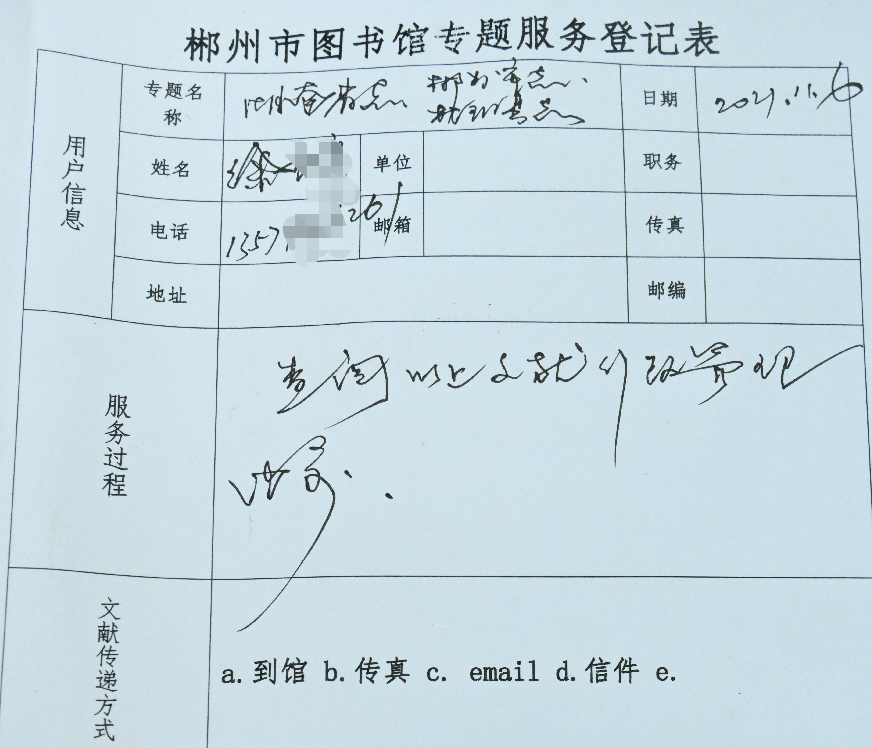 郴州市图书馆专题服务登记表
用户信息
专题名称 郴州市志、
日期 2021.11.6
姓名 徐
单位
职务
电话 1357 261
邮箱
传真
地址
邮编
服务过程
查阅以上文献行政管理
文献传递方式
a.到馆 b.传真 c. email d.信件 e.